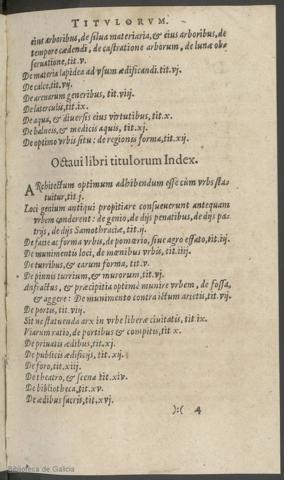 TITVLORVM.
eius arboribus, de silua materiaria, & eius arboribus, de
tempore cædendi, de castratione arborum, de lunæ ob-
seruatione, tit. v.
De materia lapidea ad vsum ædificandi. tit. vj.
De calce, tit. vij.
De arenarum generibus, tit. viij.
De laterculis, tit. ix.
De aqua, & diuersis eius virtutibus, tit. x.
De balneis, & medicis aquis, tit. xj.
De optimo vrbis situ: de regionis forma, tit. xij.
Octaui libri titulorum Index.
ARchitectum optimum adhibendum esse cùm vrbs sta-
tuitur, tit. j.
Loci genium antiqui propitiare consueuerunt antequam
vrbem conderent: de genio, de dijs penatibus, de dijs pa-
trijs, de dijs Samothraciæ, tit. ij.
De facie ac forma vrbis, de pomœrio, siue agro effato, tit. iij.
De munimentis loci, de mœnibus vrbis, tit. iiij.
De turribus, & earum forma, tit. v.
De pinnis turrium, & murorum, tit. vj.
Anfractus, & præcipitia optimè munire vrbem, de fossa,
& aggere: De munimento contra ictum arietis, tit. vij.
De portis, tit. viij.
Sit ne statuenda arx in vrbe liberæ ciuitatis, tit. ix.
Viarum ratio, de portibus & compitis, tit x.
De priuatis ædibus, tit. xj.
De publicis ædificijs, tit. xij.
De foro, tit. xiij.
De theatro, & scena tit. xiv.
De bibliotheca, tit. xv.
De ædibus sacris, tit. xvj.
):( 4
Biblioteca de Galicia